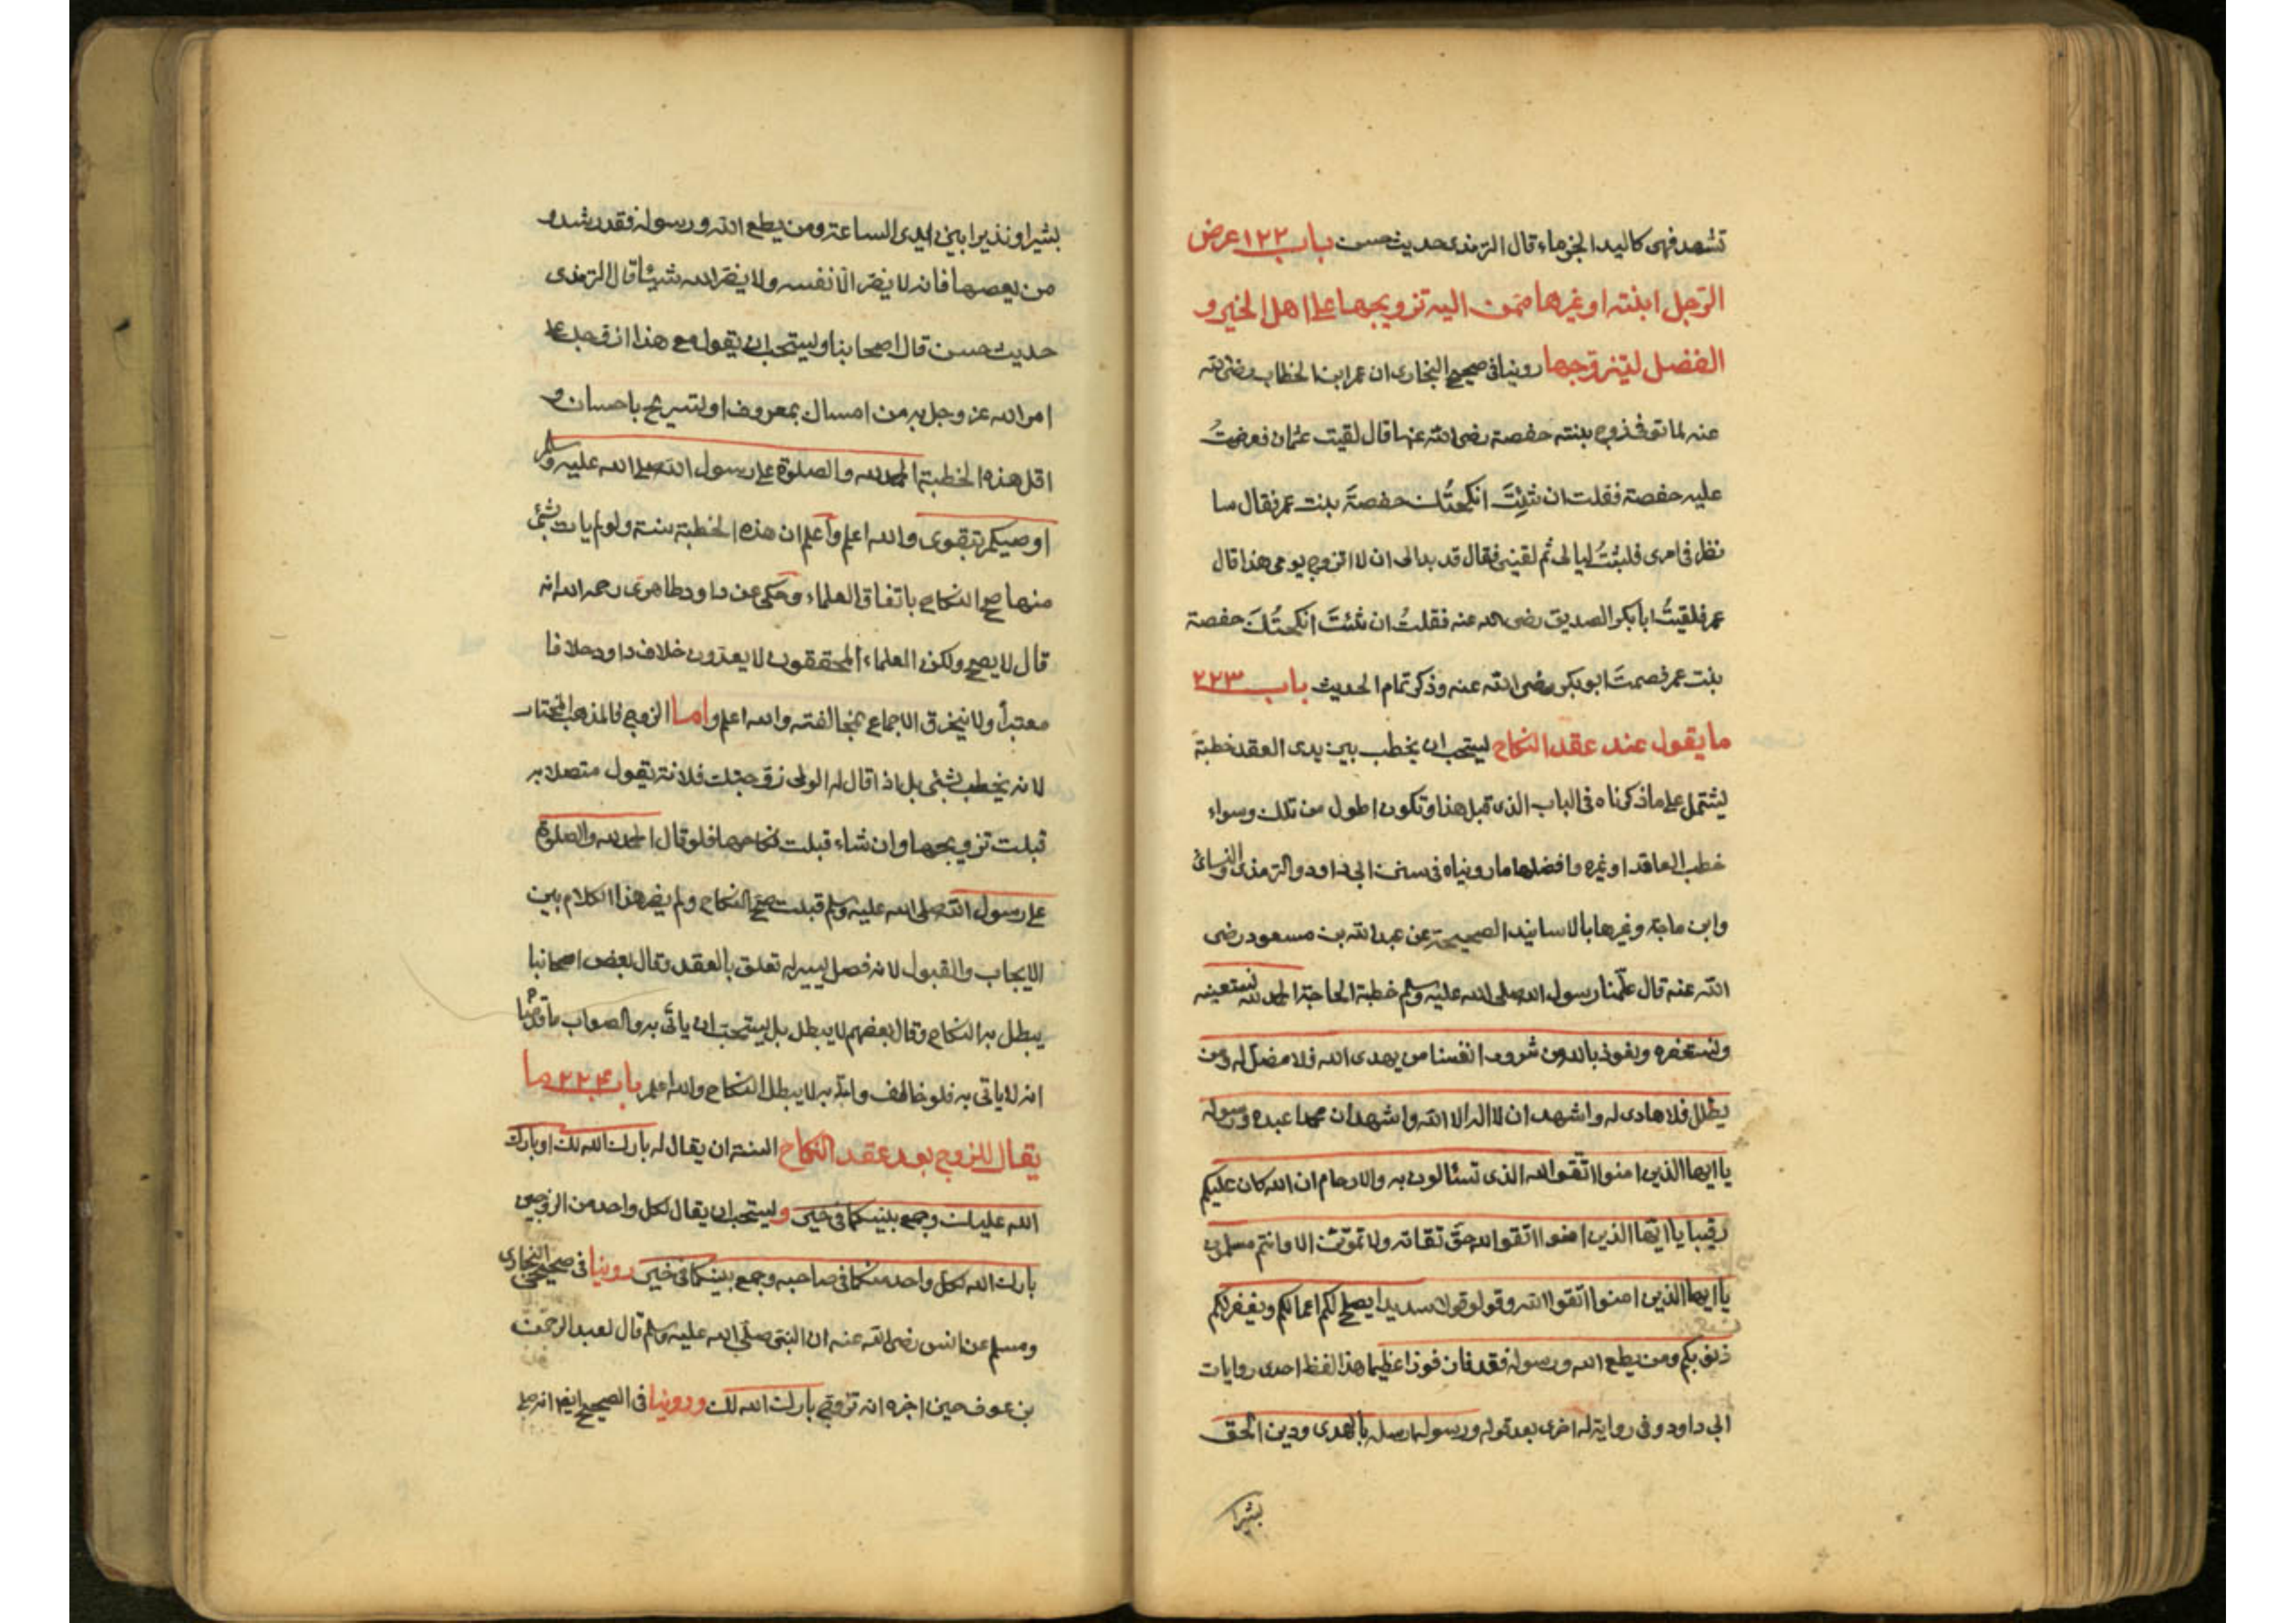 تشهد فهى كاليد الجذماء قال الترمذى حديث حسن باب ١٢٢ عرض
الرجل ابنته او غيرها ممن اليه تزويجها على اهل الخير و
الفضل ليتزوجها روينا فى صحيح البخارى ان عمر ابن الخطاب رضى الله
عنه لما توفى زوج بنته حفصة رضى الله عنها قال لقيت عثمان فعرضتُ
عليه حفصة فقلت ان شئتَ انكحتُك حفصةَ بنت عمر فقال سا
نظر فى امرى فلبثتُ ليالى ثم لقينى فقال قد بدالى ان لا اتزوج يومى هذا قال
عمر فلقيتُ ابا بكر الصديق رضى الله عنه فقلتُ ان شئتَ انكحتُكَ حفصة
بنت عمر فصمتَ ابو بكر رضى الله عنه وذكر تمام الحديث باب ٢٢٣
ما يقول عند عقد النكاح يستحب ان يخطب بين يدى العقد خطبة
يشتمل على ماذكرناه فى الباب الذى قبل هذا وتكون اطول من تلك وسواء
خطب العاقد او غيره وافضلها ما رويناه فى سنن ابى داود والترمذى والنسائى
وابن ماجة وغيرها بالاسانيد الصحيحة عن عبد الله بن مسعود رضى
الله عنه قال علّمنا رسول الله صلى الله عليه وسلم خطبة الحاجة الحمد لله نستعينه
ونستغفره ونعوذ بالله من شرور انفسنا من يهدى الله فلا مضل له ومن
يظلل فلا هادى له واشهد ان لا اله الا الله واشهد ان محمدا عبده ورسوله
يا ايها الذين امنوا اتقوا الله الذى تسئالون به والارحام ان الله كان عليكم
رقيبا يا ايها الذين امنوا اتقوا الله حق تقاته ولا تموتن الا وانتم مسلمون
يا ايها الذين امنوا اتقوا الله وقولو قولا سديدا يصلح لكم اعمالكم ويغفر لكم
ذنوبكم ومن يطع الله ورسوله فقد فاز فوزا عظيما هذا لفظ احدى روايات
ابى داود وفى رواية له اخرى بعد قوله ورسوله ارسله بالهدى ودين الحق
بشيرا
بشيرا ونذيرا بين ايدى الساعة ومن يطع الله ورسوله فقد رشد و
من يعصهما فانه لا يضر الّا نفسه ولا يضر الله شيئا قال الترمذى
حديث حسن قال اصحابنا ويستحب ان يقول مع هذا ازوجك على
امر الله عز وجل به من امساك بمعروف او تسريح باحسان و
اقل هذه الخطبة الحمد لله والصلوة على رسول الله صلى الله عليه وسلم
اوصيكم بتقوى والله اعلم وأعلم ان هذه الخطبة سنة ولو لم يات بشئ
منها صح النكاح باتفاق العلماء وحكى عن داود ظاهرى رحمه الله انه
قال لا يصح ولكن العلماء المحققون لا يعدّون خلاف داود خلافا
معتبرا ولا ينخرق الاجماع بمخالفته والله اعلم واما الزوج فالمذهب المختار
لانه يخطب بشئ بل اذا قال له الولى زوجتك فلانة يقول متصلا به
قبلت تزويجها وان شاء قبلت نكاحها فلو قال الحمد لله والصلوة
على رسول الله صلى الله عليه وسلم قبلت صح النكاح ولم يضر هذا الكلام بين
الايجاب والقبول لانه فصل يسير له تعلق بالعقد وقال بعض اصحابنا
يبطل به النكاح وقال بعضهم لا يبطل بل يستحب ان يأتى به والصواب ما قدمنا
انه لا ياتى به فلو خالف واتى به لا يبطل النكاح والله اعلم باب ٢٢٤ ما
يقال للزوج بعد عقد النكاح السنة ان يقال له بارك الله لك او بارك
الله عليك وجمع بينكما فى خير ويستحب ان يقال لكل واحد من الزوجين
بارك الله لكل واحد منكما فى صاحبه وجمع بينكما فى خير روينا فى صحيحى البخارى
ومسلم عن انس رضى الله عنه ان النبى صلى الله عليه وسلم قال لعبد الرحمن
بن عوف حين اخبره انه تزوج بارك الله لك وروينا فى الصحيح ايضا انه صلى